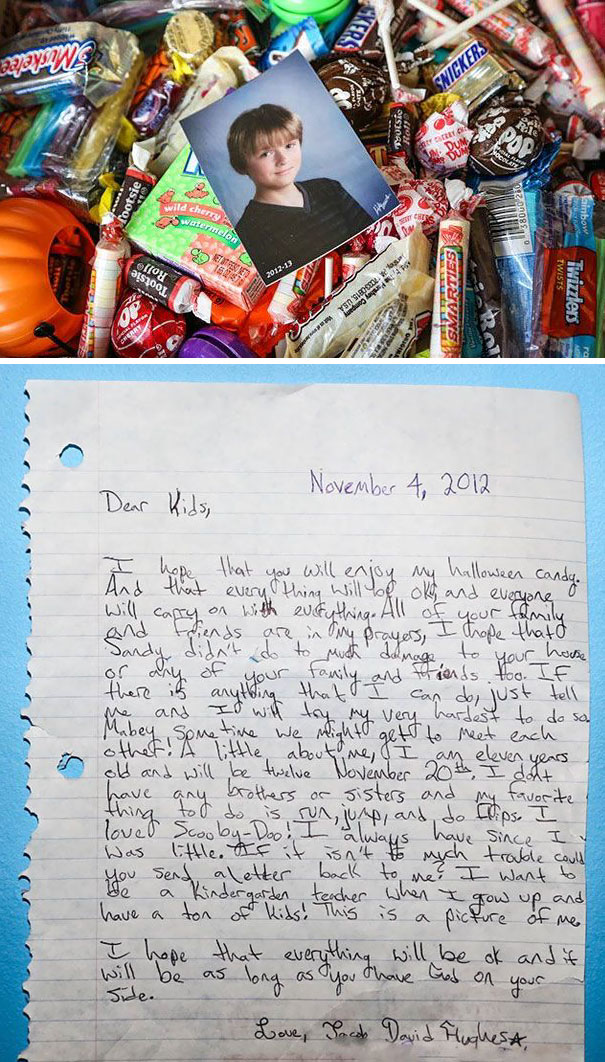 3 Musketee
SNICKERS
SNICKERS
Tootsie
POP
VERY CHERRY
DUM DUM
POP
Tootsie
Roll
wild cherry
watermelon
2012-13
Tootsie
Roll
POP
SMARTIES
Rainbow
Twizzlers
TWISTS
November 4, 2012
Dear Kids,
I hope that you will enjoy my halloween candy.
And that every thing will be ok, and everyone
will carry on with everything. All of your family
and friends are in my prayers, I hope that
Sandy didn't do to much damage to your house
or any of your family and friends too. If
there is anything that I can do, just tell
me and I will try my very hardest to do so.
Mabey sometime we might get to meet each
other! A little about me, I am eleven years
old and will be twelve November 20th. I dont
have any brothers or sisters and my favorite
thing to do is run, jump, and do flips. I
love Scooby-Doo! I always have since I
was little. If it isn't to much trouble could
you send a letter back to me? I want to
be a Kindergarden teacher when I grow up and
have a ton of kids! This is a picture of me.
I hope that everything will be ok and it
will be as long as you have God on your
side.
Love, Jacob David Hughes